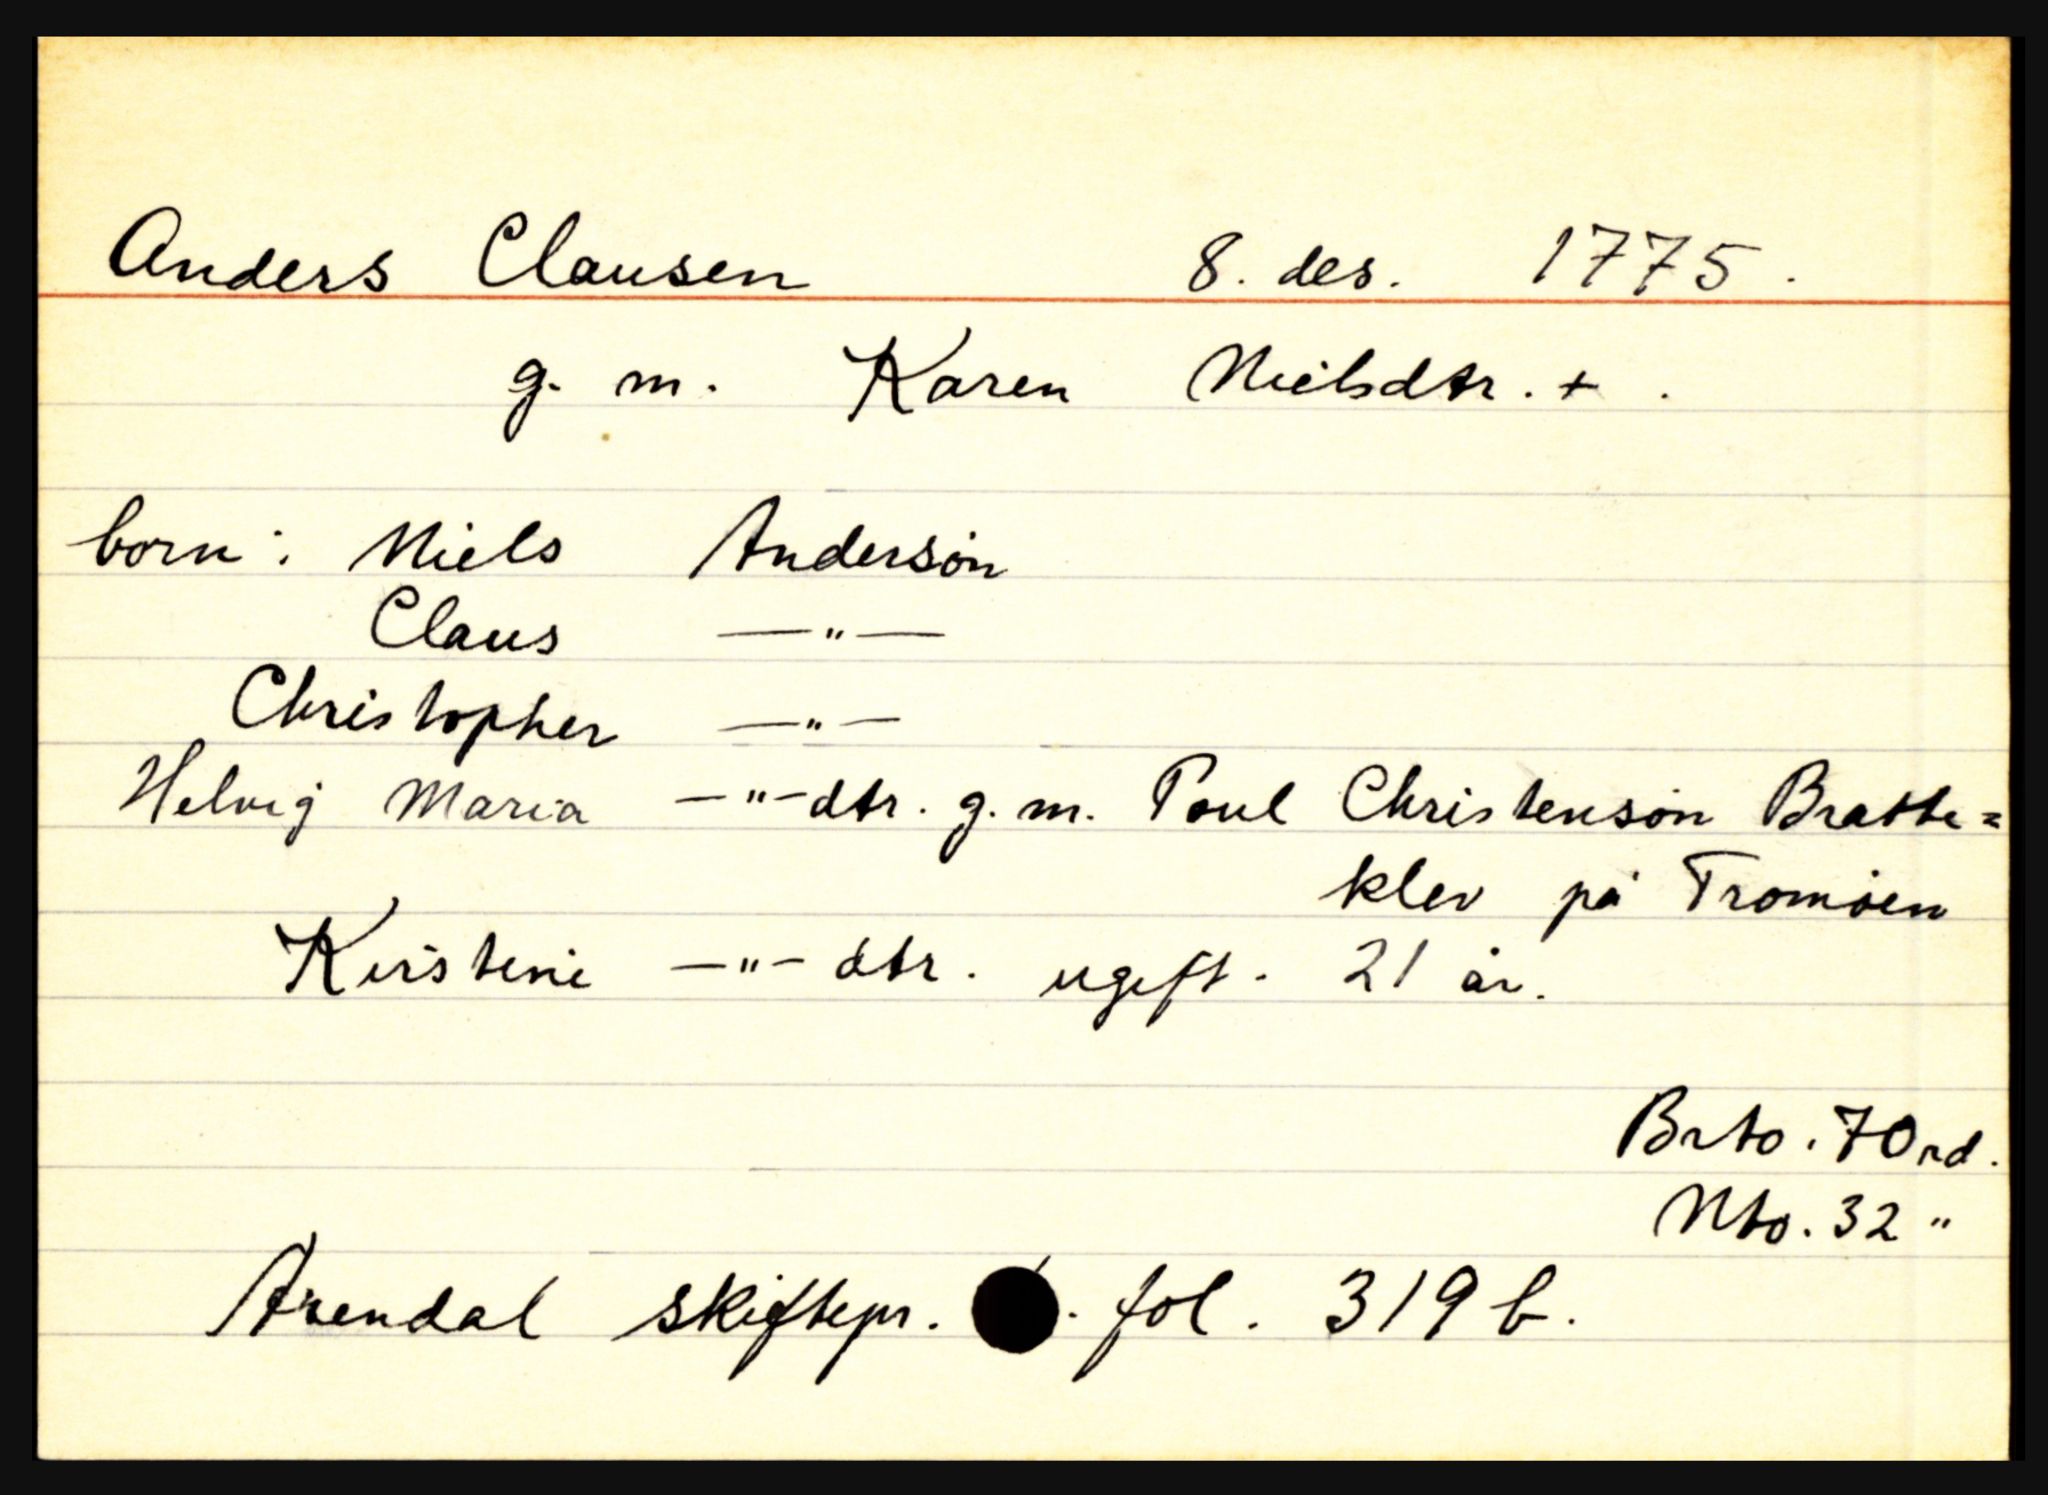 Anders Clausen 8. des. 1775.
g. m. Karen Nielsdtr. + .
born: Niels Andersøn
Claus —"—
Christopher —"—
Helvig Maria —"—dtr. g. m. Poul Christensøn Bratte=
klev på Tromøen
Kirstine —"— dtr. ugift. 21 år.
Brto. 70 rd.
Nto. 32 "
Arendal skiftepr. . fol. 319 b.